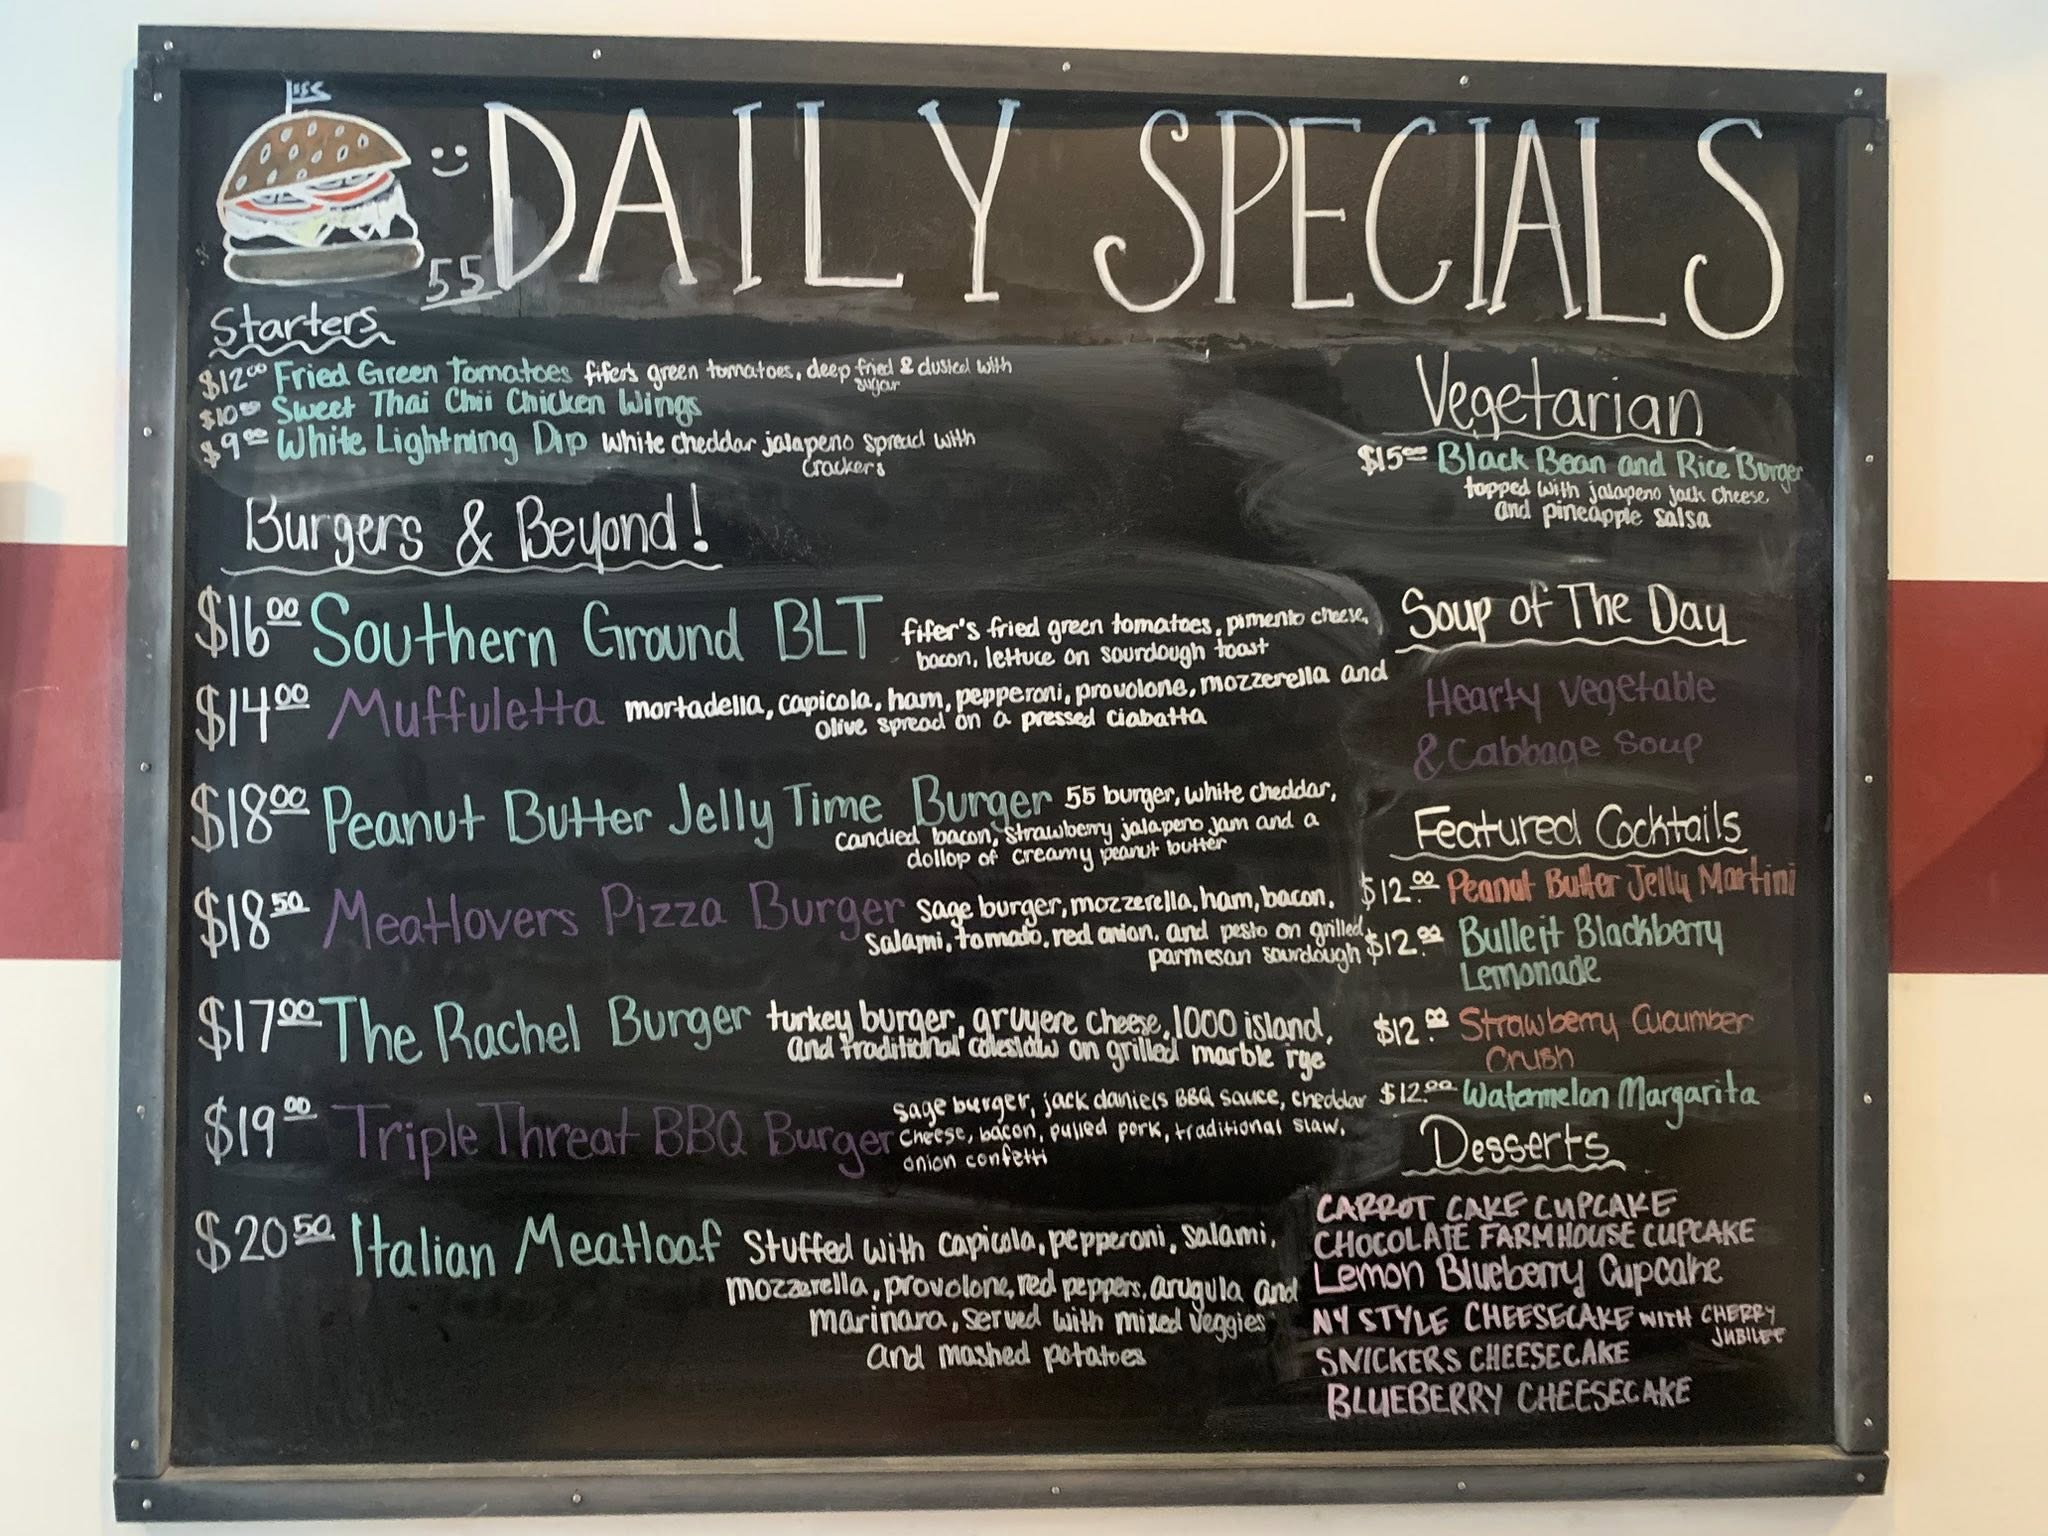 DAILY SPECIALS
55
Starters
$12.00 Fried Green Tomatoes fifer's green tomatoes, deep fried & dusted with
sugar
$10.00 Sweet Thai Chii Chicken Wings
$9.00 White Lightning Dip white cheddar jalapeno spread with
crackers
Burgers & Beyond!
$16.00 Southern Ground BLT fifer's fried green tomatoes, pimento cheese,
bacon, lettuce on sourdough toast
$14.00 Muffuletta mortadella, capicola, ham, pepperoni, provolone, mozzerella and
olive spread on a pressed ciabatta
$18.00 Peanut Butter Jelly Time Burger 55 burger, white cheddar,
candied bacon, strawberry jalapeno jam and a
dollop of creamy peanut butter
$18.50 Meatlovers Pizza Burger sage burger, mozzerella, ham, bacon,
salami, tomato, red onion, and pesto on grilled
parmesan sourdough
$17.00 The Rachel Burger turkey burger, gruyere cheese, 1000 island,
and traditional coleslaw on grilled marble rye
$19.00 Triple Threat BBQ Burger sage burger, jack daniels BBQ sauce, cheddar
cheese, bacon, pulled pork, traditional slaw,
onion confetti
$20.50 Italian Meatloaf stuffed with capicola, pepperoni, salami,
mozzarella, provolone, red peppers, arugula and
marinara, served with mixed veggies
and mashed potatoes
Vegetarian
$15.00 Black Bean and Rice Burger
topped with jalapeno jack cheese
and pineapple salsa
Soup of The Day
Hearty vegetable
& Cabbage Soup
Featured Cocktails
$12.00 Peanut Butter Jelly Martini
$12.00 Bulleit Blackberry
Lemonade
$12.00 Strawberry Cucumber
Crush
$12.00 Watermelon Margarita
Desserts
CARROT CAKE CUPCAKE
CHOCOLATE FARMHOUSE CUPCAKE
Lemon Blueberry Cupcake
NY STYLE CHEESECAKE WITH CHERRY
JUBILEE
SNICKERS CHEESECAKE
BLUEBERRY CHEESECAKE